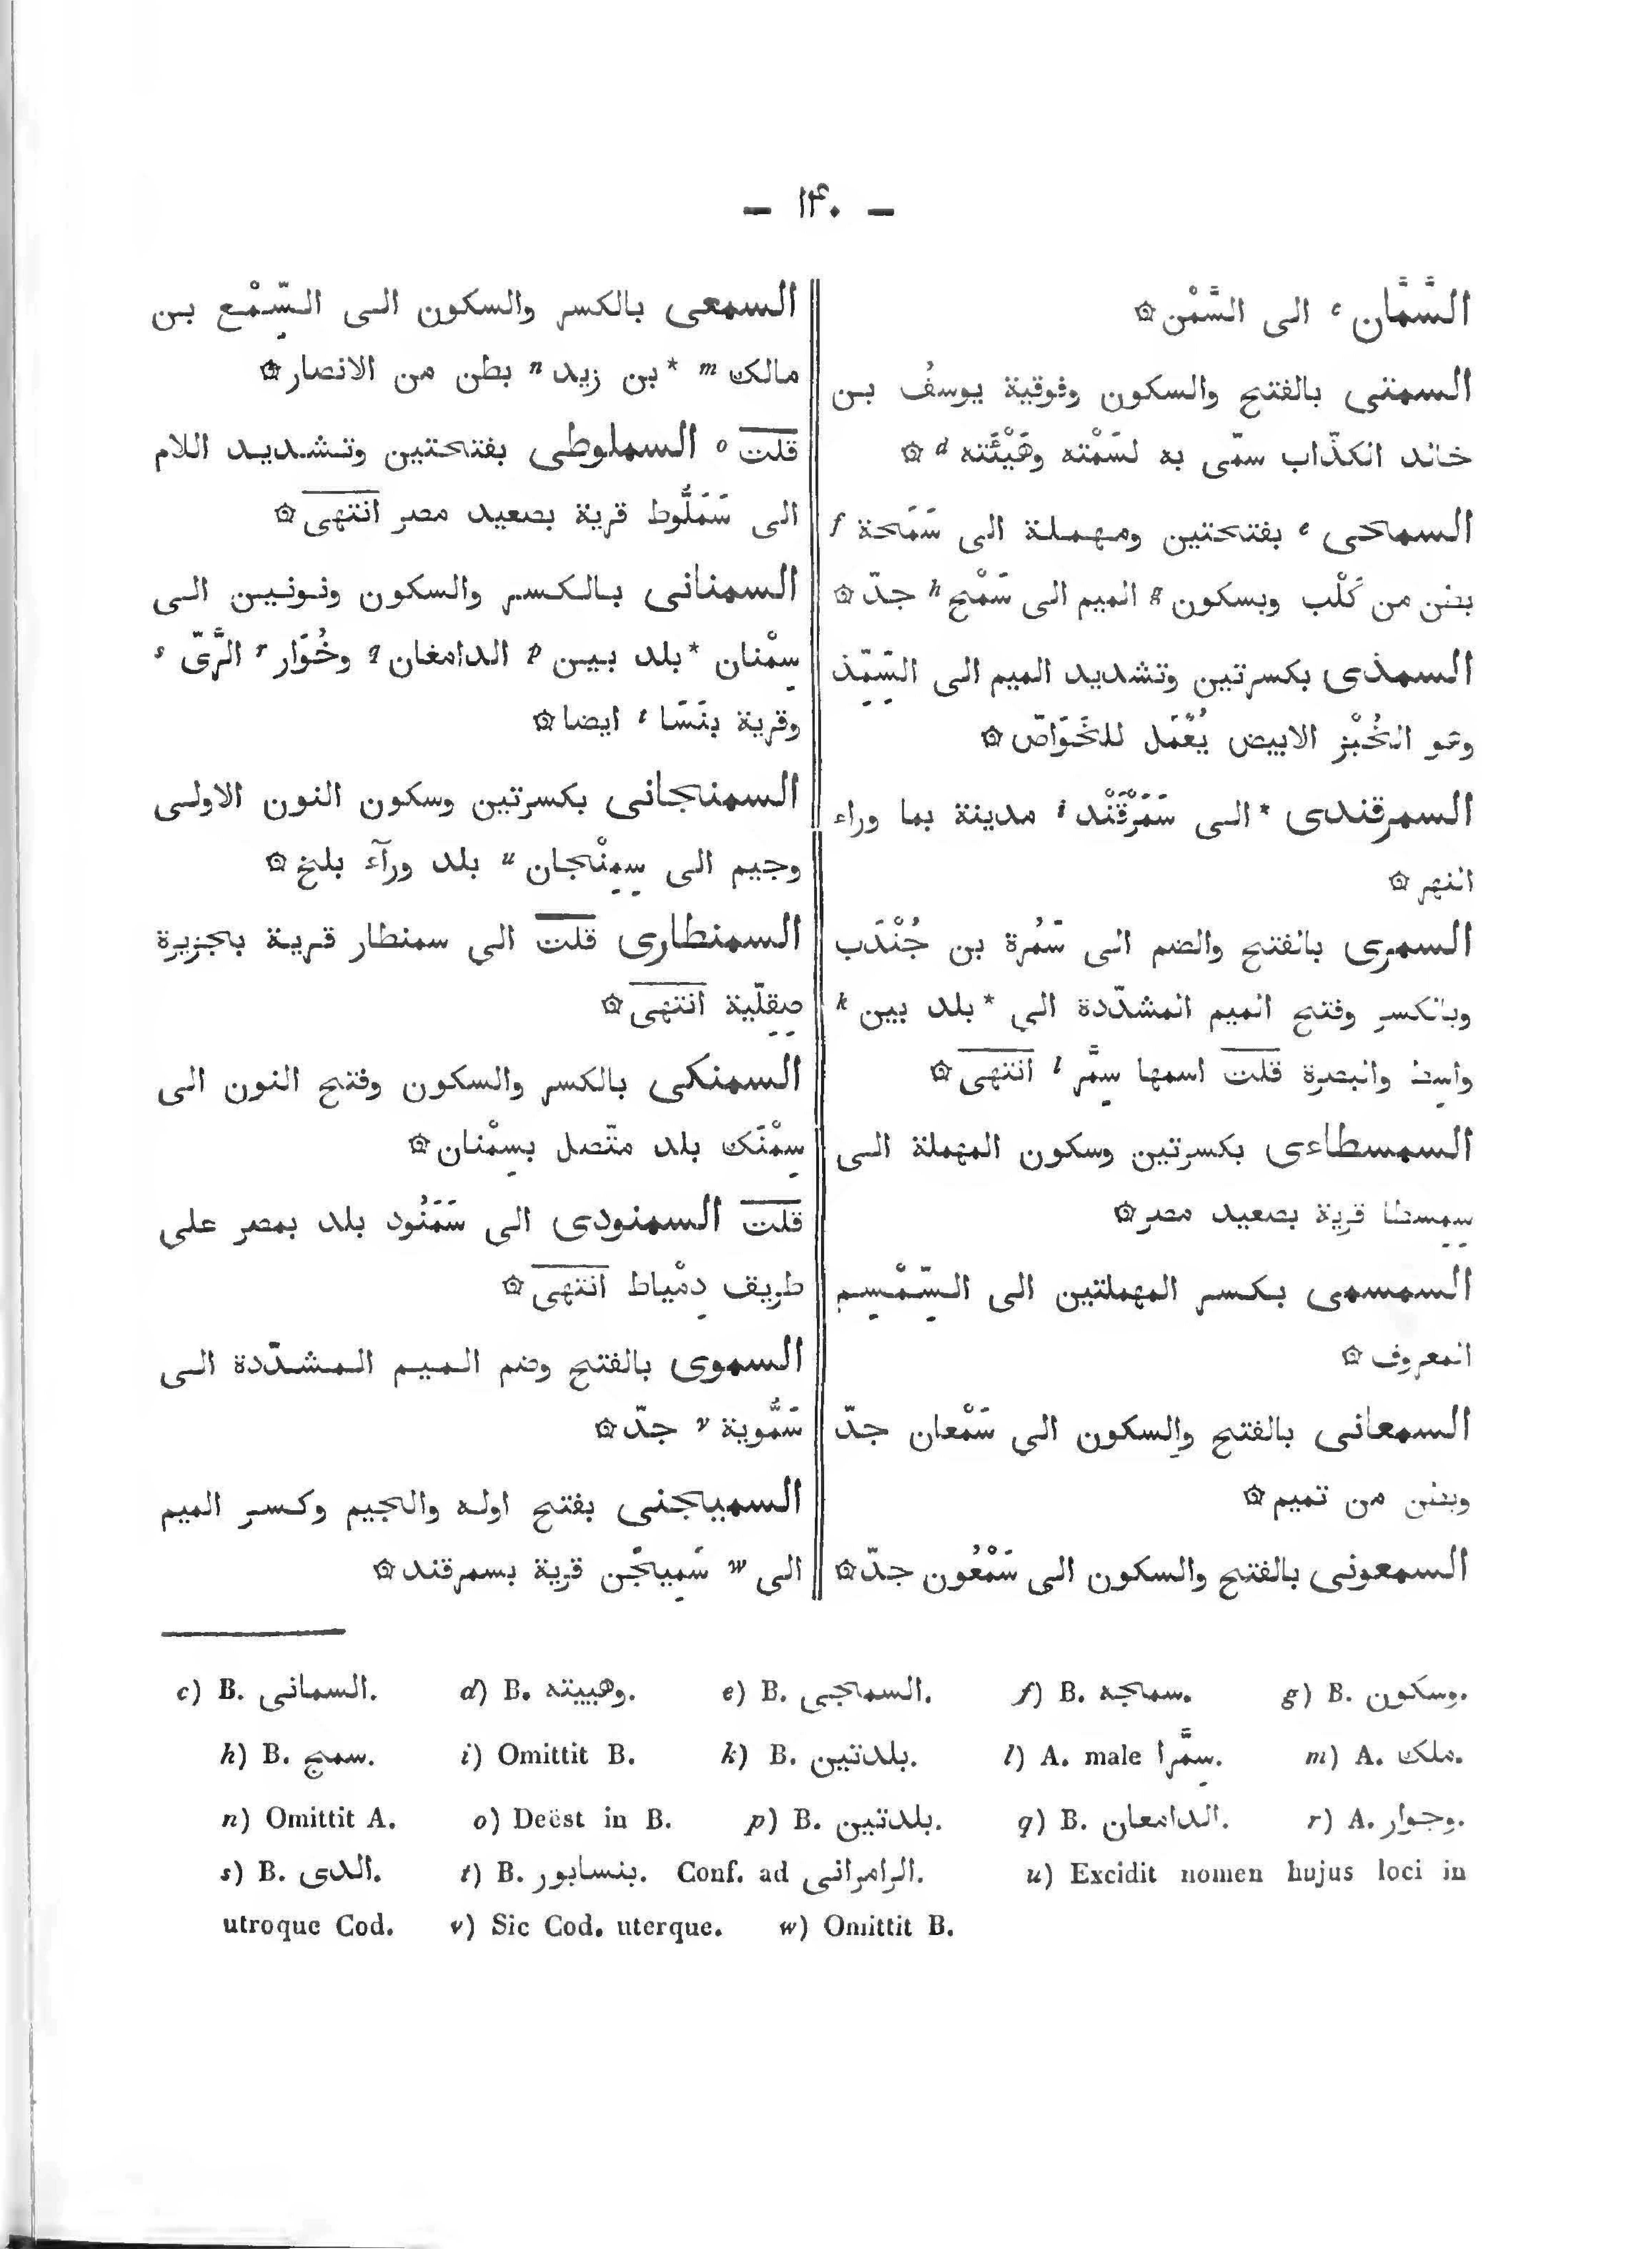 — ١۴٠ —
السَّمَّان c الى السَّمْن ۞
السمتى بالفتح والسكون وفوقية يوسفُ بن
خالد الكذّاب سمّى به لسَمْته وهَيْئَته d ۞
السمحى e بفتحتين ومهملة الى سَمَحة f
بطن من كَلْب وبسكون g الميم الى سَمْح h جدّ ۞
السمذى بكسرتين وتشديد الميم الى السِّمِّذ
وهو الخُبْز الابيض يُعْمَل للخَوَاصّ ۞
السمرقندى * الى سَمَرْقَنْد i مدينة بما وراء
النهر ۞
السمرى بالفتح والضم الى سَمُرة بن جُنْدَب
وبالكسر وفتح الميم المشدّدة الى * بلد بين k
واسِط والبصرة قلت اسمها سِمَّر l انتهى ۞
السمسطاءى بكسرتين وسكون المهملة الى
سِمِسطا قرية بصعيد مصر ۞
السمسمى بكسر المهملتين الى السِّمْسِم
المعروف ۞
السمعانى بالفتح والسكون الى سَمْعان جدّ
وبطن من تميم ۞
السمعونى بالفتح والسكون الى سَمْعُون جدّ ۞
السمعى بالكسر والسكون الى السِّمْع بن
مالك m * بن زيد n بطن من الانصار ۞
قلت o السملوطى بفتحتين وتشديد اللام
الى سَمَلُّوط قرية بصعيد مصر انتهى ۞
السمنانى بالكسر والسكون ونونين الى
سِمْنان * بلد بين p الدامغان q وخُوَار r الرَّىّ s
وقرية بنَسَا t ايضا ۞
السمنجانى بكسرتين وسكون النون الاولى
وجيم الى سِمِنْجان u بلد ورآء بلخ ۞
السمنطارى قلت الى سمنطار قرية بجزيرة
صِقِلّية انتهى ۞
السمنكى بالكسر والسكون وفتح النون الى
سِمْنَك بلد متّصل بسِمْنان ۞
قلت السمنودى الى سَمَنُود بلد بمصر على
طريق دِمْياط انتهى ۞
السموى بالفتح وضم الميم المشدّدة الى
سَمُّوية v جدّ ۞
السميجنى بفتح اوله والجيم وكسر الميم
الى w سَمِيجَن قرية بسمرقند ۞
c) B. السمانى. d) B. وهيبته. e) B. السماجى. f) B. سماجه. g) B. وسكون.
h) B. سمج. i) Omittit B. k) B. بلدتين. l) A. male سِمَّرا. m) A. ملك.
n) Omittit A. o) Deëst in B. p) B. بلدتين. q) B. الدامعان. r) A. وجوار.
s) B. الدى. t) B. بنسابور. Conf. ad الرامرانى. u) Excidit nomen hujus loci in
utroque Cod. v) Sic Cod. uterque. w) Omittit B.